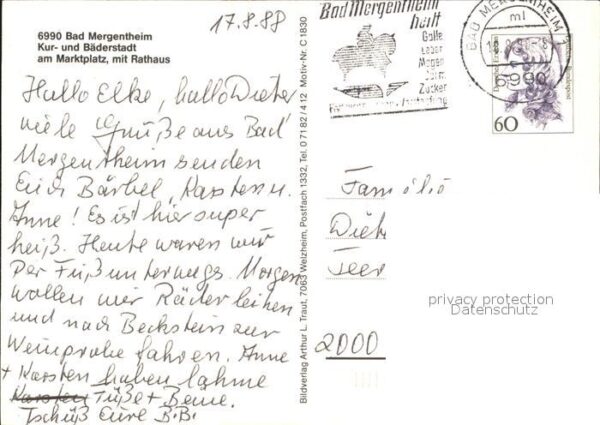 17.8.88
6990 Bad Mergentheim
Kur- und Bäderstadt
am Marktplatz, mit Rathaus
Hallo Elke, hallo Dieter
viele Grüße aus Bad
Mergentheim senden
Euch Bärbel, Karsten u.
Anne! Es ist hier super
heiß. Heute waren wir
per Fuß unterwegs. Morgen
wollen wir Räder leihen
und nach Beckstein zur
Weinprobe fahren. Anne
+ Karsten haben lahme
Karsten Füße + Beine.
Tschüß Eure B.B.
Bildverlag Arthur L. Traut, 7063 Welzheim, Postfach 1332, Tel. 07182/412 Motiv-Nr. C 1830
Bad Mergentheim
heilt
Galle
Leber
Magen
Darm
Zucker
BAD MERGENTHEIM
ml
6990
60
Fam
Diet
Teer
2000
privacy protection
Datenschutz